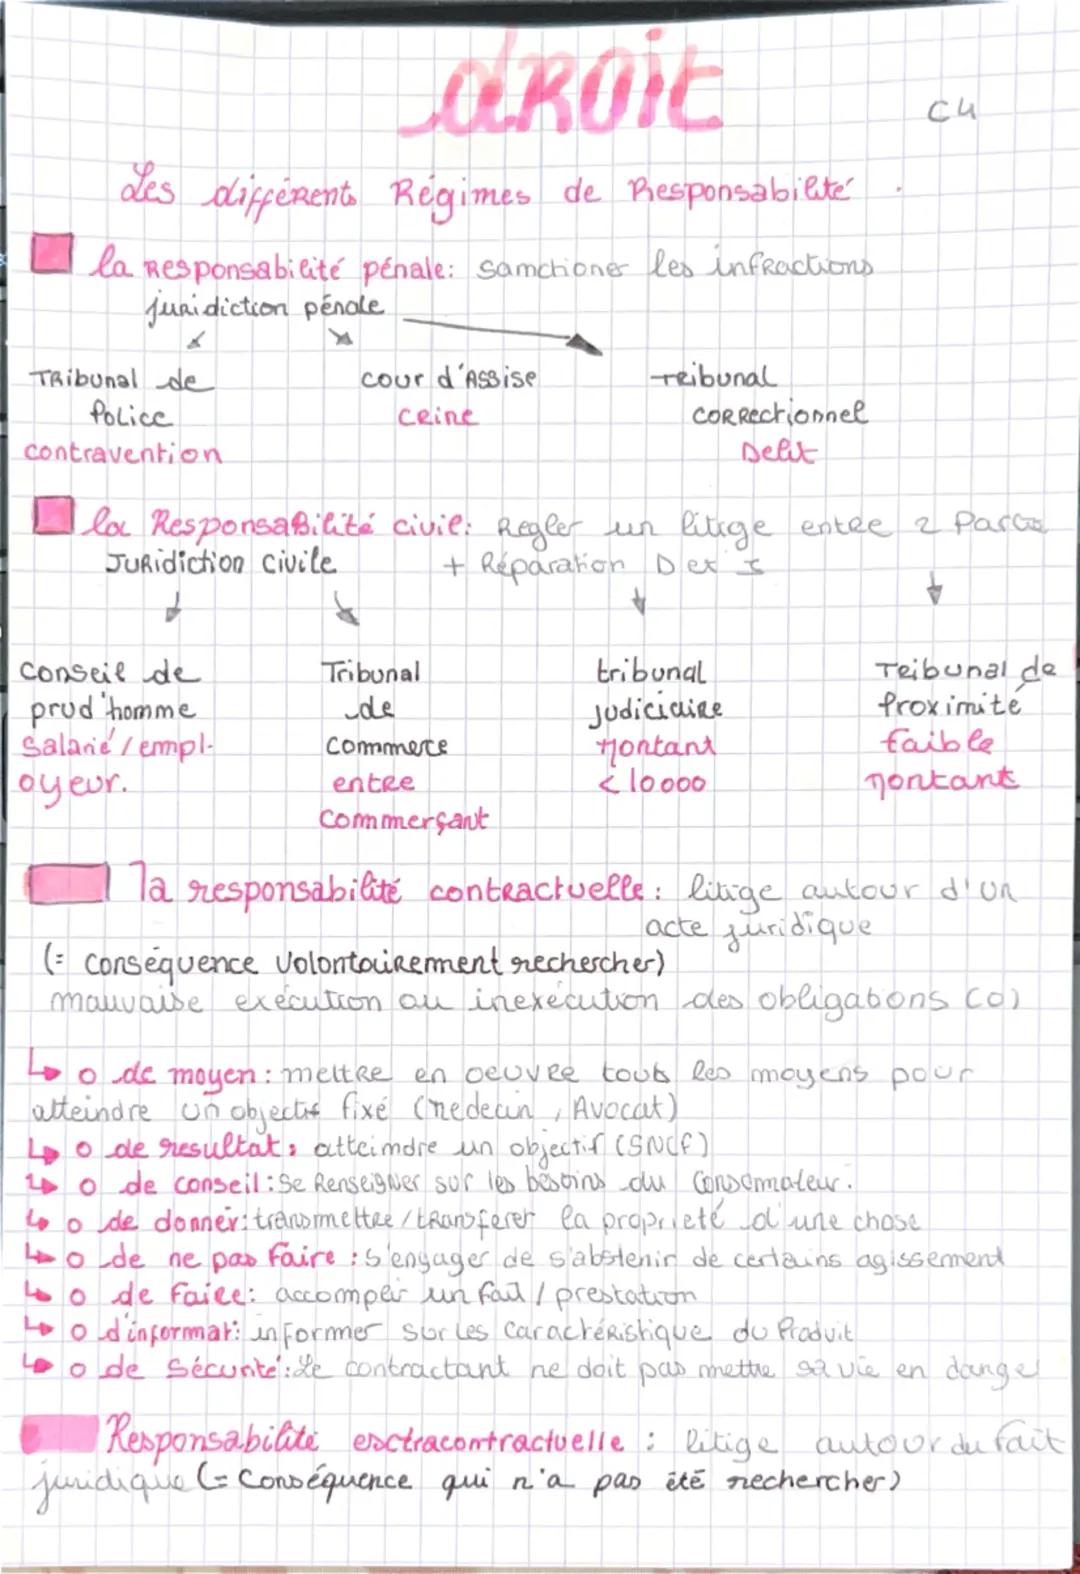 droit
C4
Les différents Régimes de Responsabilité.
la Responsabilité pénale: samctioner les infractions
juridiction pénale
Tribunal de cour d'Assise tribunal
Police Crime correctionnel
contravention Delit
la Responsabilité civil: Regler un litige entre 2 Partie
Juridiction Civile + Réparation D et I
Conseil de Tribunal tribunal Tribunal de
prud'homme de judiciaire Proximité
Salarié / empl- commerce Montant faible
oyeur. entre <10000 Montant
Commerçant
la responsabilité contractuelle: litige autour d'un
acte juridique
(= conséquence Volontairement rechercher)
mauvaise exécution ou inexécution des obligations (O)
↳ o de moyen: mettre en oeuvre tout les moyens pour
atteindre un objectif fixé (medecin, Avocat)
↳ o de resultat: atteindre un objectif (SNCF)
↳ o de conseil: Se Renseigner sur les besoins du Consommateur.
↳ o de donner: transmettre / transferer la propriété d'une chose
↳ o de ne pas Faire: s'engager de s'abstenir de certains agissement
↳ o de Faire: accomplir un fait / prestation
↳ o d'informar: informer sur les Caractéristique du Produit
↳ o de Sécurité: Le contractant ne doit pas mettre sa vie en dange
Responsabilité esctracontractuelle: litige autour du fait
juridique (= Conséquence qui n'a pas été rechercher)